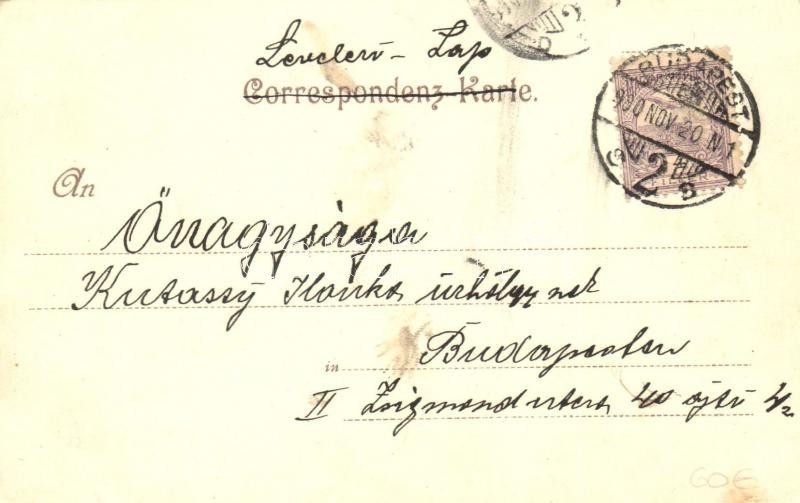 Levelezö-Lap
Correspondenz-Karte.
BUDAPEST
900 NOV 20 N 1
2
An
Önagysága
Kutassy Ilonka úrhölgynek
in Budapesten
II Zsigmond utcza 40 ajtó 4/2
GOE